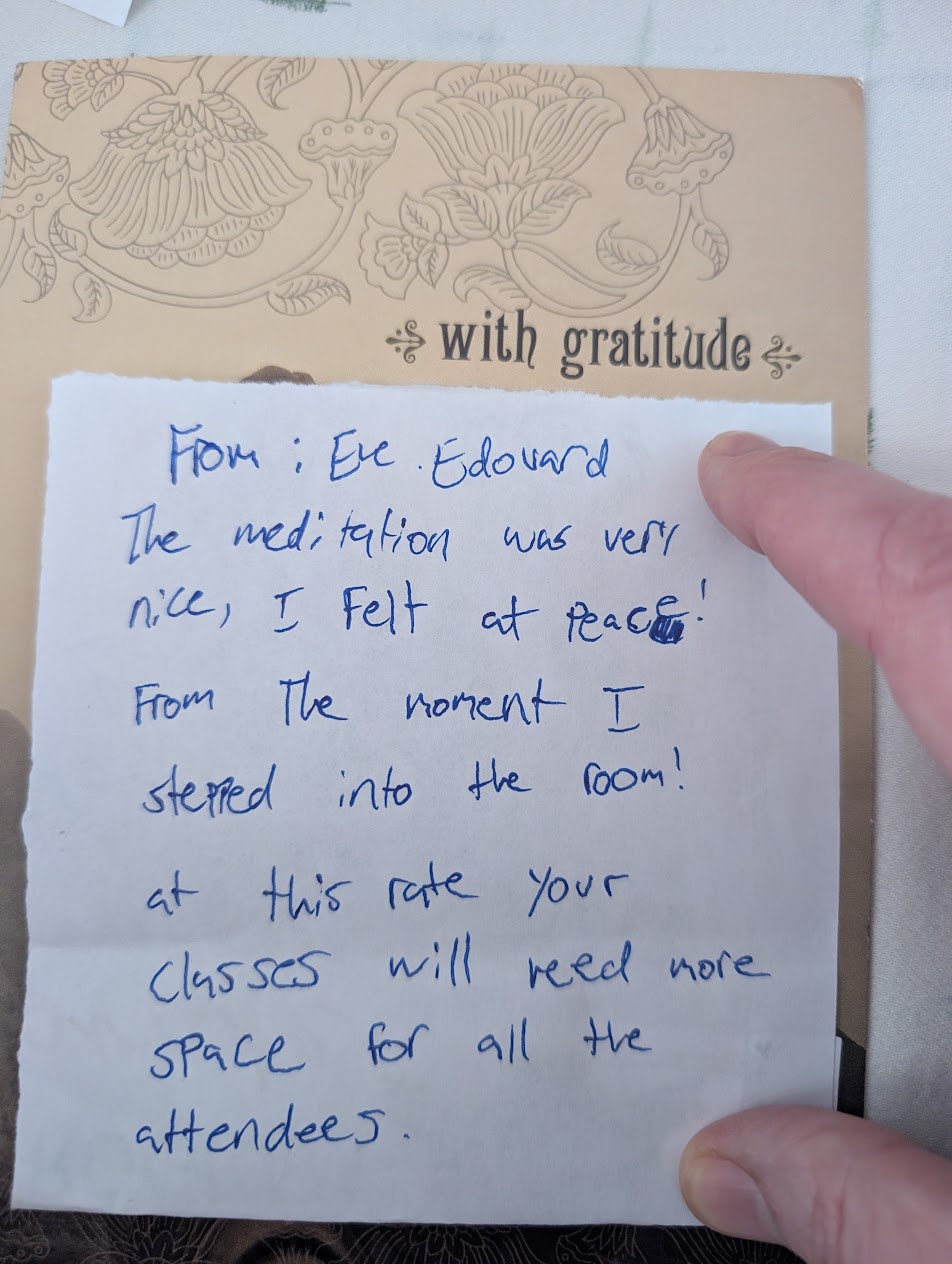 with gratitude
From : Eve . Edouard
The meditation was very
nice, I Felt at peace!
From The moment I
stepped into the room!
at this rate your
classes will need more
space for all the
attendees.